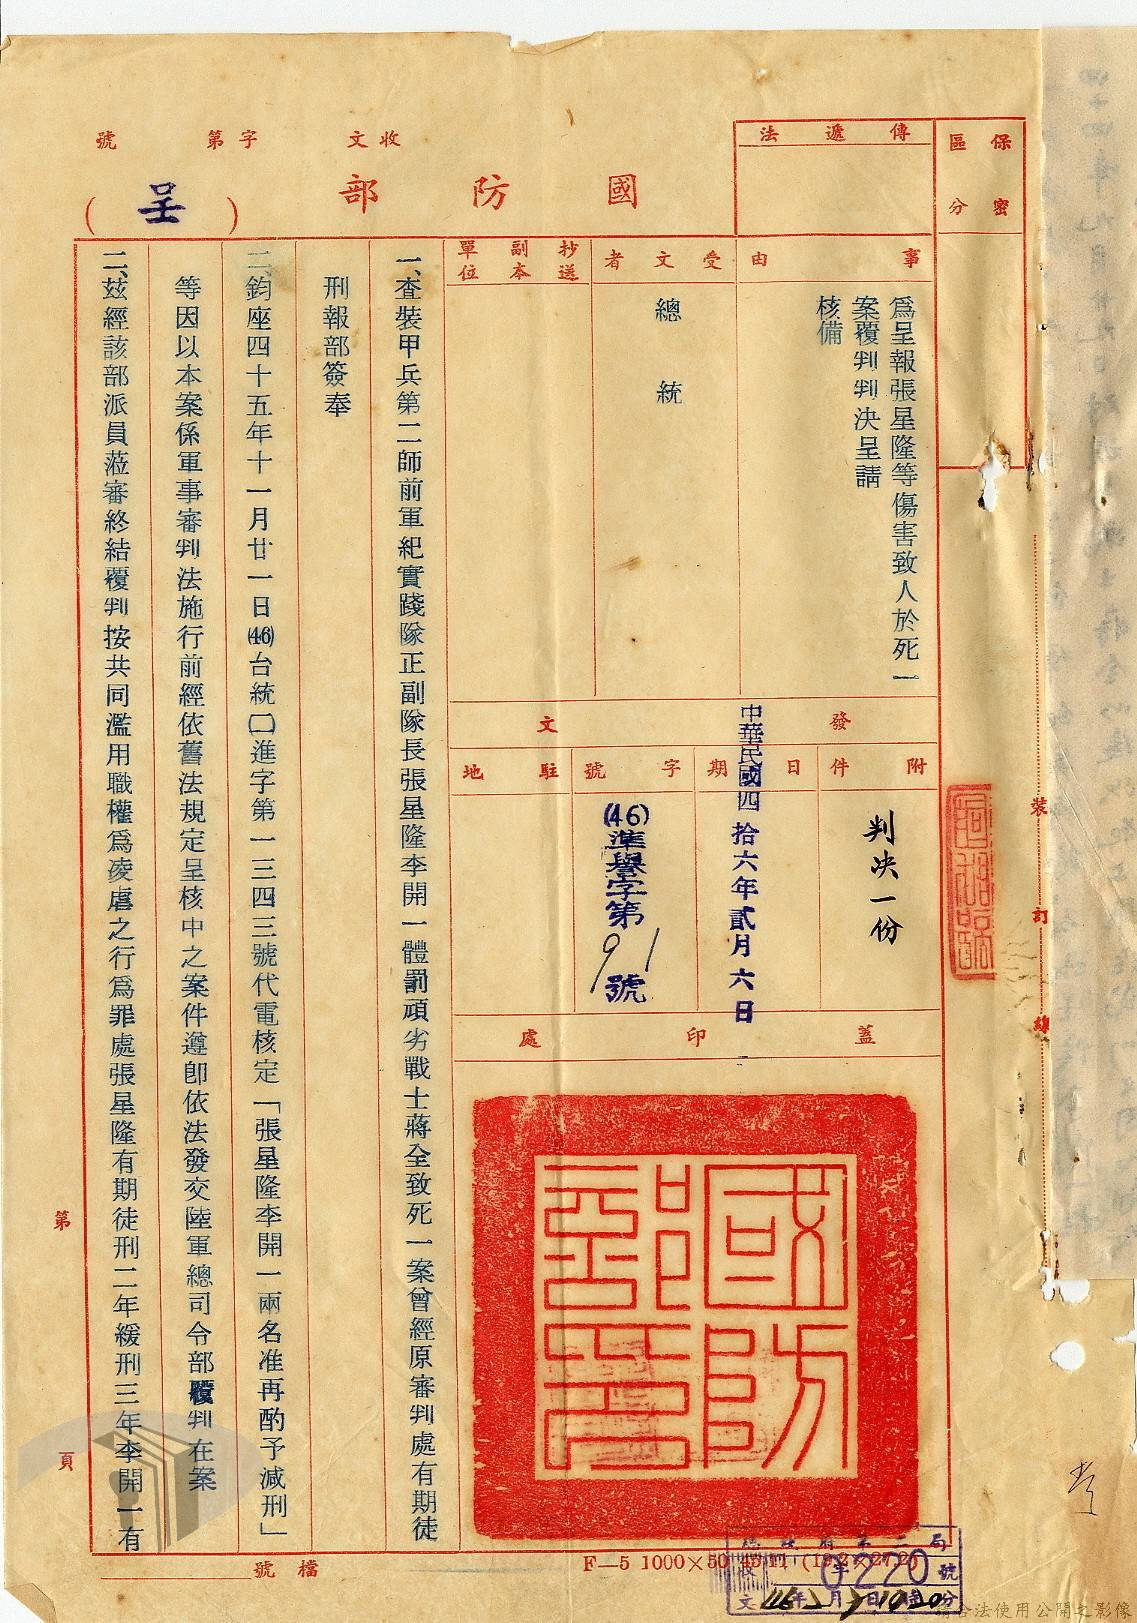 保密區分
傳遞法
收文 字第 號
國防部
(呈)
事由
為呈報張星隆等傷害致人於死一
案覆判判決呈請
核備
受文者
總統
抄送副本單位
發文
附件
判決一份
日期
中華民國四拾六年貳月六日
字號
(46)準譽字第91號
駐地
蓋印處
國防部印
一、查裝甲兵第二師前軍紀實踐隊正副隊長張星隆李開一體罰頑劣戰士蔣全致死一案曾經原審判處有期徒
刑報部簽奉
二、鈞座四十五年十一月廿一日(46)台統(二)進字第一三四三號代電核定「張星隆李開一兩名准再酌予減刑」
等因以本案係軍事審判法施行前經依舊法規定呈核中之案件遵即依法發交陸軍總司令部覆判在案
二、玆經該部派員蒞審終結覆判按共同濫用職權為凌虐之行為罪處張星隆有期徒刑二年緩刑三年李開一有
裝訂線
第 頁
檔號
F—5 1000×50
0220號
請合法使用公開之影像